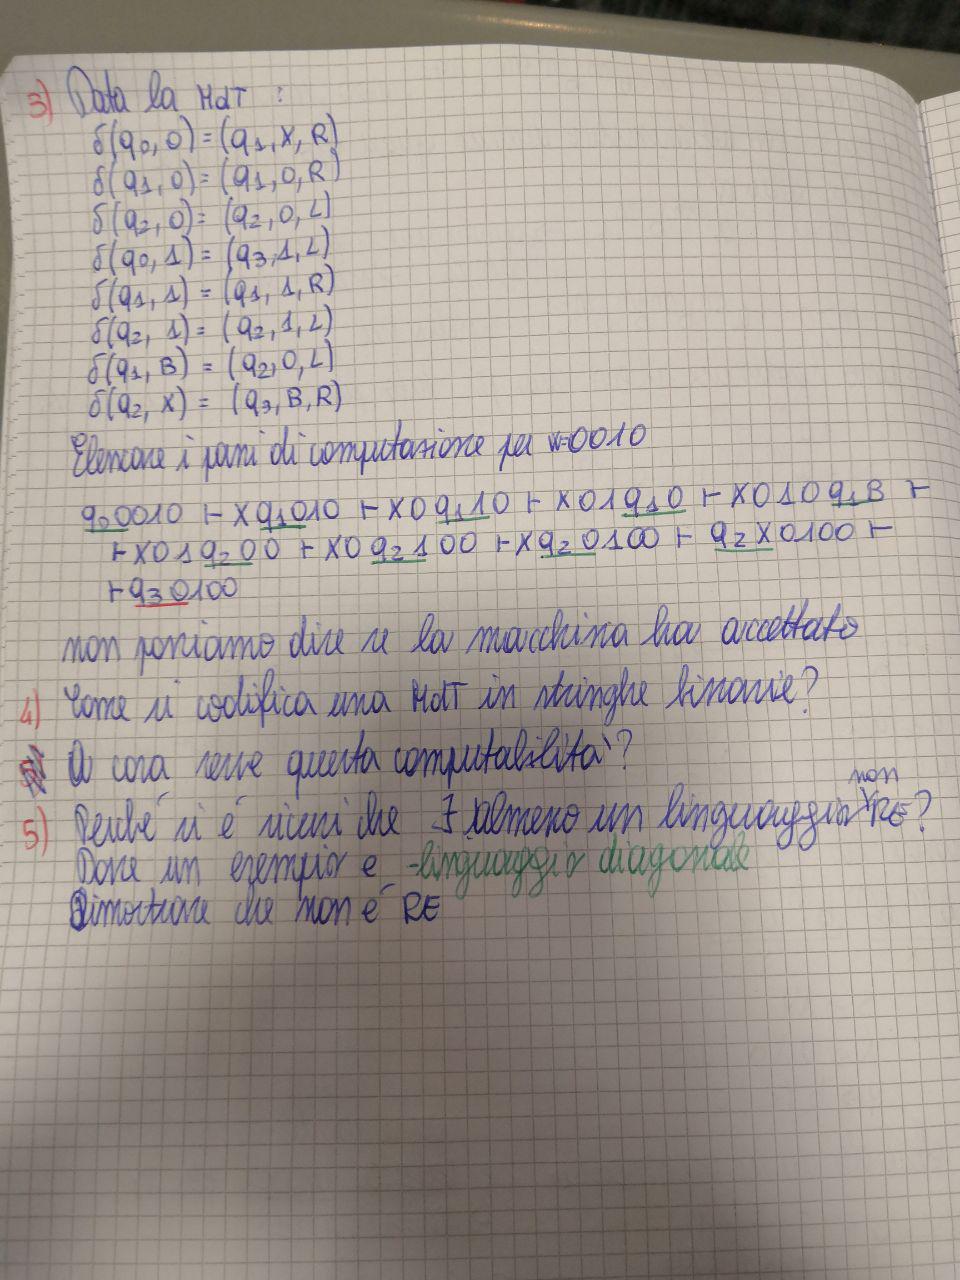 3) Data la MdT :
δ(q0, 0) = (q1, X, R)
δ(q1, 0) = (q1, 0, R)
δ(q2, 0) = (q2, 0, L)
δ(q0, 1) = (q3, 1, L)
δ(q1, 1) = (q1, 1, R)
δ(q2, 1) = (q2, 1, L)
δ(q1, B) = (q2, 0, L)
δ(q2, X) = (q3, B, R)
Elencare i passi di computazione per w=0010
q00010 ⊢ Xq1010 ⊢ X0q110 ⊢ X01q10 ⊢ X010q1B ⊢
⊢ X01q200 ⊢ X0q2100 ⊢ Xq20100 ⊢ q2X0100 ⊢
⊢ q30100
non possiamo dire se la macchina ha accettato
4) Come si codifica una MdT in stringhe binarie?
A cosa serve questa computabilità?
5) Perché si è sicuri che ∃ almeno un linguaggio non RE?
Dare un esempio e - linguaggio diagonale
Dimostrare che non è RE